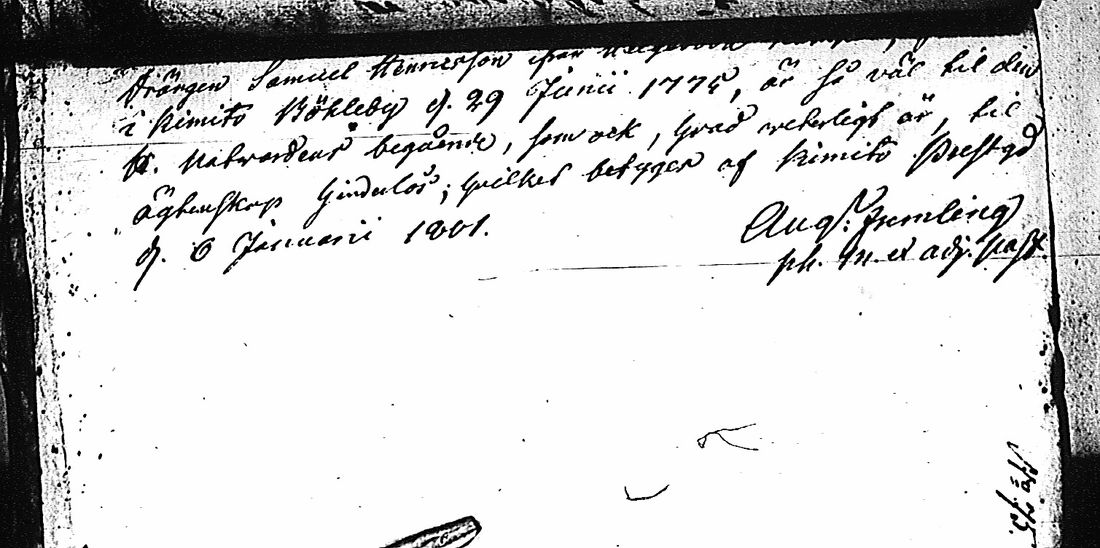 Drängen Samuel Henricsson från
i Kimito Böhleby d. 29 Junii 1775, är så väl til dess
H. Nattvardens begående, som ock, hvad veterligt är, til
ägtenskap hinderlös; hvilket betyges af Kimito Prestgd
d. 6 Januarii 1801.
Aug. Jumling
ph. M. et adj. past.